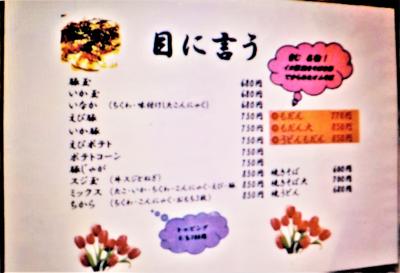 目に言う
豚玉 680円
いか玉 680円
いなか (ちくわ・味付け大こんにゃく) 680円
えび豚 750円
いか豚 750円
えびポテト 750円
ポテトコーン 750円
豚じゃが 750円
スジ玉 (牛スジとねぎ) 850円
ミックス (たこ・いか・ちくわ・こんにゃく・えび・豚) 850円
ちから (ちくわ・こんにゃく・おもち3枚) 850円
◎もだん 770円
◎もだん大 850円
◎うどんもだん 850円
焼きそば 600円
焼きそば大 700円
焼うどん 680円
トッピング